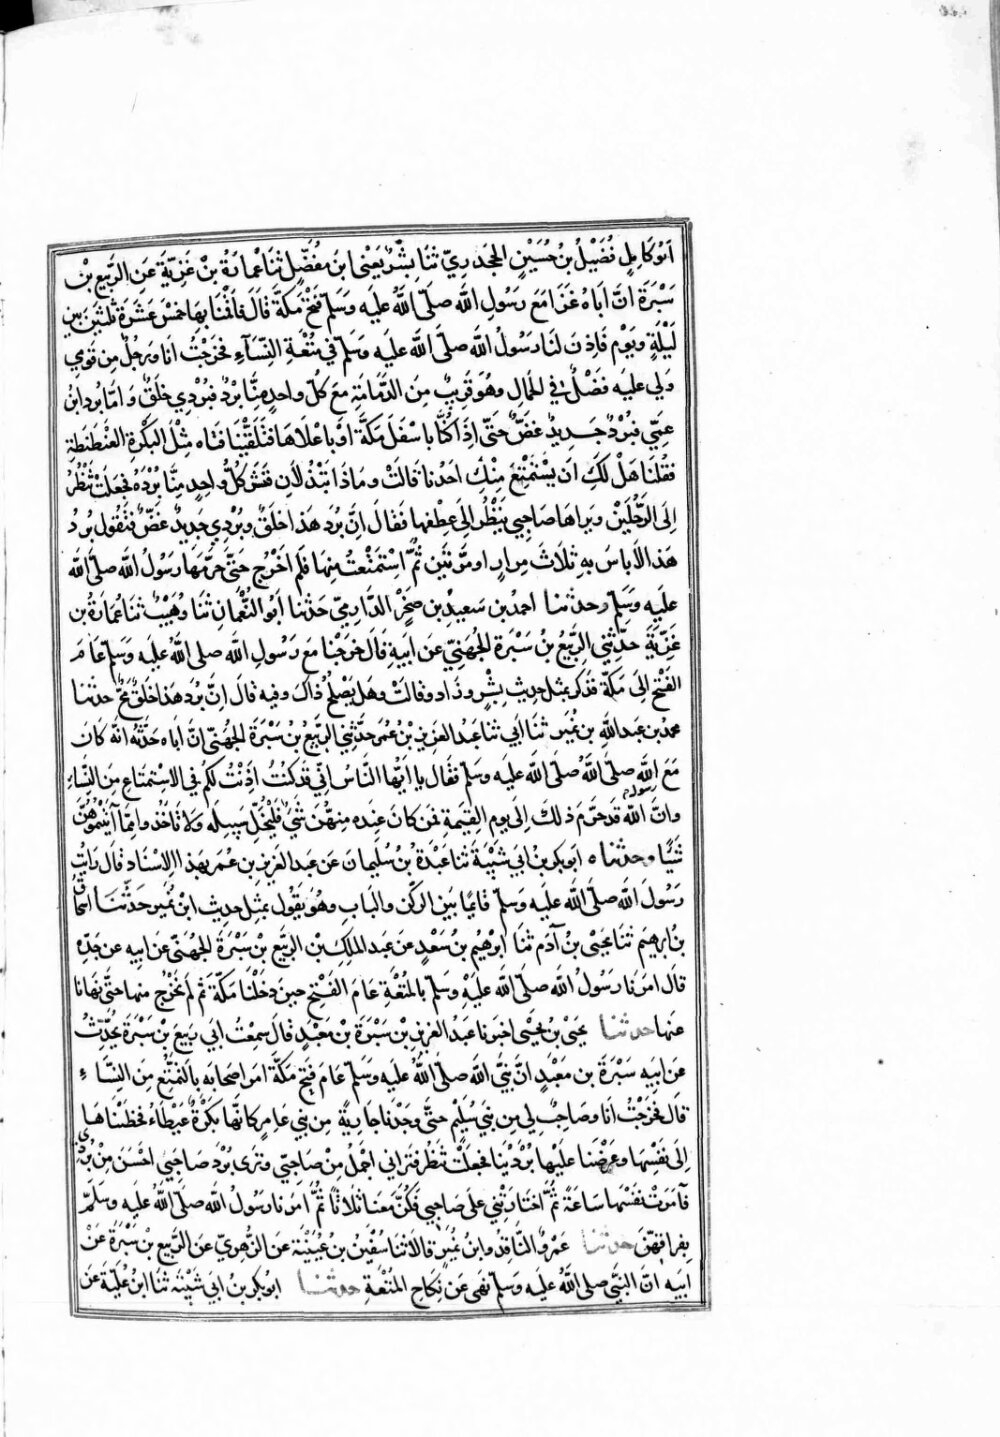 اَبُو كَامِلٍ فُضَيْلُ بنُ حُسَيْنٍ الجَحْدَرِيّ ثنَا بِشْرٌ يَعْنِى ابنَ مُفَضَّلٍ ثنَا عُمَارَةُ بْنُ غَزِيَّةَ عَنِ الرَّبِيعِ بْنِ
سَبْرَةَ انَّ اَبَاهُ غَزَا مَعَ رَسُولِ اللّه صلَّى اللّهُ عليَه وَسَلَمَ فَتْحَ مَكَّةَ قَالَ فَاَقَمْنَا بِهَا خَمْسَ عَشَرَةَ ثَلثِينَ بَينَ
لَيْلَةٍ وَيَوْمٍ فَاَذِنَ لَنَا رَسُولُ اللّه صلَّى اللّه عليَه وسَلمّ فِي مُتْعَةِ النِّسَآءِ فَخَرَجْتُ انَا وَرَجُلٌ مِن قَومِي
وَلِي عَليه فَضْلٌ فِي الجَمَالِ وهُوَ قَرِيبٌ مِنَ الدَّمَامَةِ مَعَ كُلّ واحِدٍ مِنَّا بُرْدٌ فبُرْدِي خَلَقٌ وَامَّا بُرد ابنُ
عَمِّي فبُرْدٌ جَدِيدٌ غَضٌّ حَتَّى اِذَا كُنَّا باسْفَلِ مَكَّةَ اَوْ باعْلَاهَا فتَلَقَّتْنَا فَتَاه مِثْلَ البَكْرَةِ العَنَطْنَطَةِ
فقُلنَا هَلْ لَكِ ان يَسْتَمْتِعَ مِنْكِ احَدُنا قَالَتْ ومَاذَا تَبْذُلَانِ فنَشَرَ كُلُّ واحِدٍ مِنَّا بُرْدَهُ فجَعَلَتْ تَنْظُرُ
اِلَى الرَّجُلَيْنِ ويَرَاهَا صَاحِبِي يَنْظُرُ الِى عِطْفِهَا فَقَالَ انَّ بُرْدَ هَذا خَلَقٌ وبُرْدِي جَدِيدٌ غَضٌّ فتَقُول بُردُ
هَذا لَاباسَ بهِ ثلَاثَ مِرَارٍ او مَرَّتَين ثُمّ اسْتَمْتَعْتُ مِنهَا فلَم اَخْرُجْ حَتَّى حَرَّمَهَا رَسُولُ اللّه صلَّى اللّه
عليَه وَسَلمَّ وحدثنا احمَدُ بن سَعيدِ بن صَخْرٍ الدَّارِمِيّ حَدَثنا اَبُو النُّعْمَانِ ثنَا وُهَيْبٌ ثنَا عُمَارَةُ بن
غَزِيَّةَ حَدّثِنِي الرَّبيعُ بنُ سَبْرَةَ الجُهَنِيّ عَن ابَيهِ قَال خرَجْنَا مَع رَسُولِ اللّه صلى اللّه عليَه وسَلّم عَامَ
الفَتْحِ اِلَى مَكَّةَ فذَكرَ بمِثْل حَدِيثِ بِشْرٍ وزَادَ وقَالتْ وهَل يَصْلُحُ ذَاكَ وفيِه قَالَ انَّ بُرْدَ هَذا خَلَقٌ مَحٌّ حدثنا
محمدُ بن عَبدِ اللّه بن نُمَيرٍ ثنَا اَبي ثنا عَبْدُ العَزيزِ بْنُ عُمَرَ حَدَّثنِي الرَّبيعُ بنُ سَبْرَةَ الجُهَنِيّ انَّ اَباه حَدَّثهُ انَّه كَانَ
مَعَ رسول اللّه صلَّى اللّهُ عَليَه وسَلمّ فقَال يا اَيُّهَا النَّاسُ اِنِّي قَد كُنْتُ اَذِنْتُ لَكُم فِي الاسْتِمتَاعِ مِنَ النِّسَاءِ
وانَّ اللّه قَد حَرَّمَ ذَلِكَ اِلَى يومِ القِيَمَةِ فمَن كَانَ عِندَه مِنهُنَّ شَيٌ فَليُخَلّ سَبِيلَه ولَا تَاخُذوا مِمَّا آتيتُمُوهُنَّ
شَيًا وحدثناه اَبوبكر بنُ ابي شَيْبَةَ ثنا عَبْدَةُ بْنُ سُلَيمانَ عَن عبد العَزيزِ بن عُمَر بِهَذا الاِسْنَادِ قَال رَايْتُ
رَسُولَ اللّه صلَّى اللّه عليَه وسَلّم قَايمًا بَين الرُكْن والبَاب وهُوَ يَقُول بمِثلِ حَديثِ ابْن نُمَيرٍ حَدثَّنَا اسْحَاقُ
بْنُ ابرهِيمَ ثنَا يَحيَى بنُ آدَم ثَنَا ابرَهيمُ بنُ سَعْدٍ عَن عَبدِ المَلكِ بْن الرَّبيعِ بنِ سَبْرَةَ الجُهَنِّي عَن ابَيِه عن جَدّهِ
قال امَرنا رَسُولُ اللّه صلَّى اللّه عليَهْ وسَلّم بالمُتْعَةِ عَامَ الفَتْحِ حينَ دَخَلْنَا مَكَّةَ ثمّ لم نَخْرُجْ منهَا حتَّى نهَانا
عنهَا حدثنا يَحيَى بنُ يَحْيَى اخبرَنا عَبدُ العَزيزِ بْنُ سَبْرَةَ بْن مَعْبَدٍ قَالَ سَمِعْتُ ابِي رَبيعَ بن سَبْرَةَ يُحَدِّثُ
عَن ابَيِه سَبْرَةَ بن مَعْبَدٍ انَّ نَبِيَّ اللّه صلَّى اللّهُ عليَه وَسَلّمَ عَام فَتحِ مَكَّةَ امَرَ اصحَابَه بالتَّمَتُّعِ مِنَ النِّسَاءِ
قَال فخَرَجْتُ انَا وصَاحِبٌ لِي مِن بَنِي سُلَيْمٍ حَتَّى وجَدْنَا جَارِيَةً مِن بَنِي عَامِرٍ كانَّهَا بَكْرَةٌ عَيْطَاءُ فخَطَبْنَاهَا
اِلَى نَفْسِهَا وعَرَضْنَا عَليْهَا بُرْدَيْنَا فجَعَلتْ تَنظُر فتَرَانِي اَجْمَلُ مِنْ صَاحِبِي وتَرَى بُرْدَ صَاحِبِي احْسَنَ مِنْ بُرْدِي
فآمَرَتْ نَفْسَهَا سَاعَةً ثُمَّ اخْتَارَتْنِي عَلَى صَاحِبِي فكُنَّ مَعَنَا ثلَاثًا ثُمَّ امَرَنا رَسُولُ اللّه صلَّى اللّهُ عليَه وسَلّم
بِفِرَاقِهنَّ حدثنا عَمْرٌو النَّاقِدُ وابنُ نُمَيرٍ قَالَا ثنَا سُفيَنُ بنُ عُيَيْنَة عَنِ الزُّهرِيّ عَن الرَّبيعِ بن سَبْرَةَ عَنْ
ابَيهِ انَّ النَّبِيّ صلى اللّهُ عليَه وسَلمّ نهَى عَن نِكَاحِ المُتْعَةِ حدثنا ابَوُبكر بنُ ابي شَيْبَة ثنَا ابنُ عُلَيَّةَ عَن